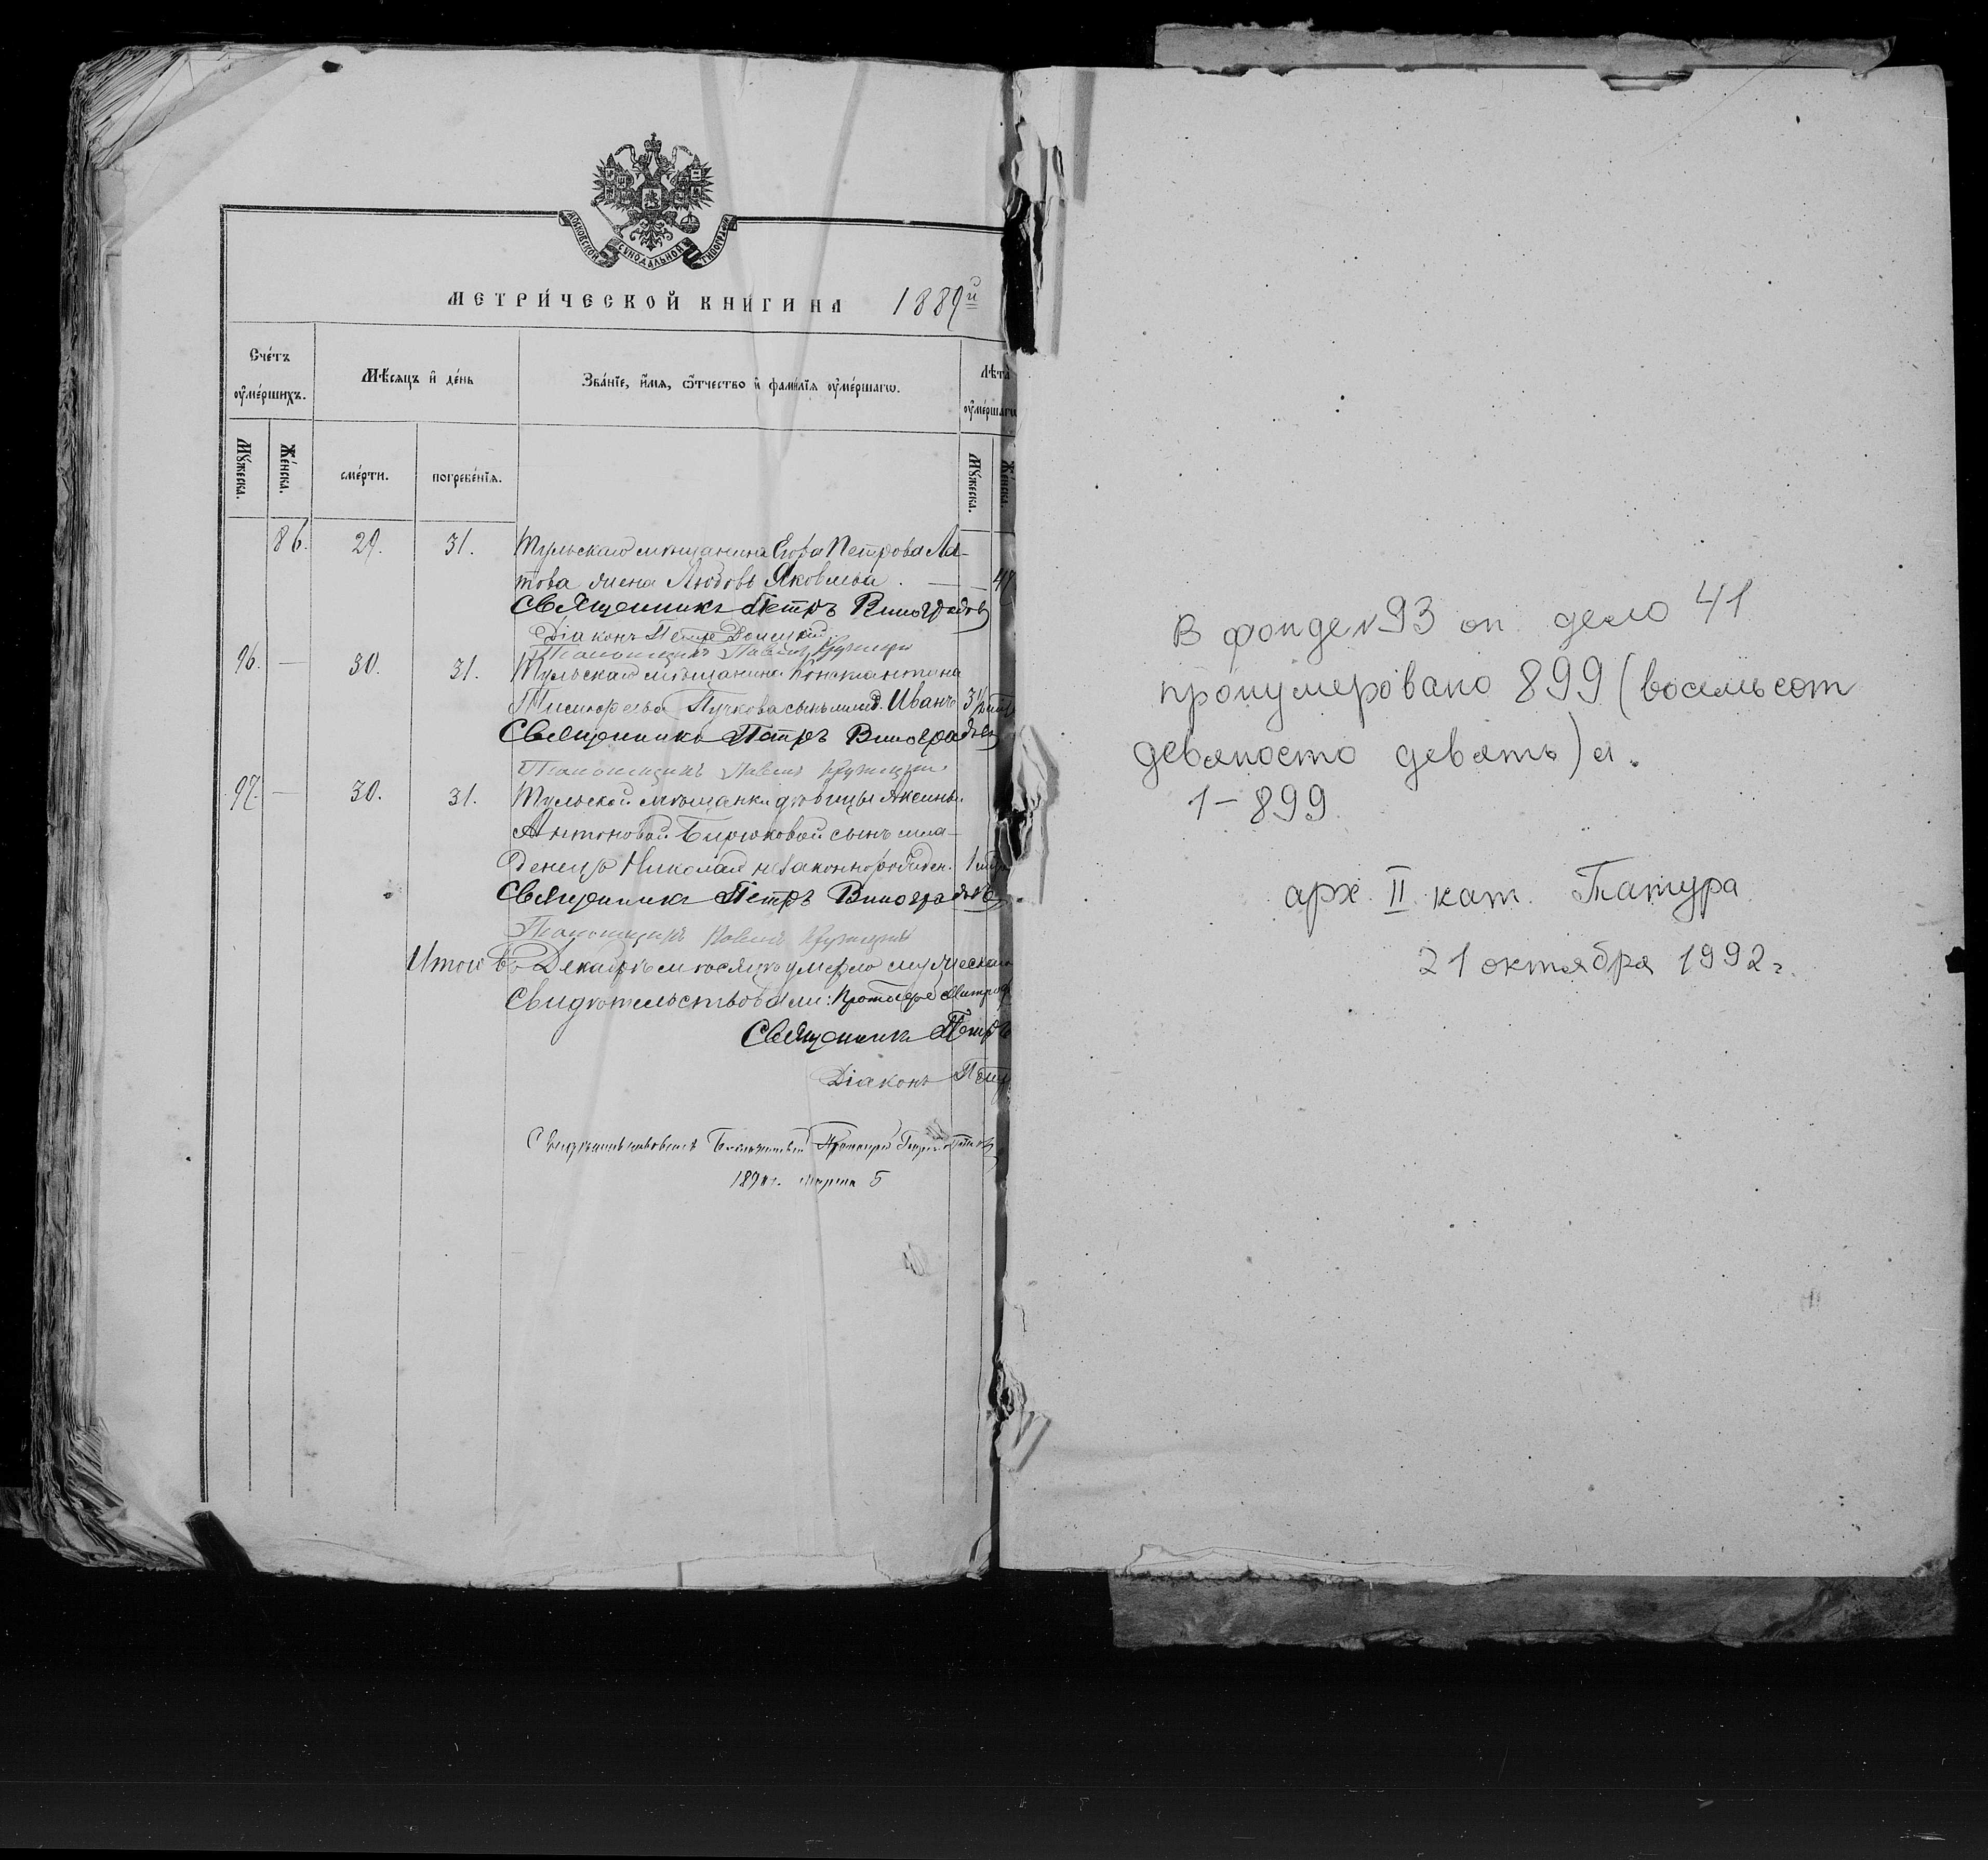 МОСКОВСКОЙ СѴНОДАЛЬНОЙ ТИПОГРАФІИ
МЕТРИ́ЧЕСКОЙ КНИГИ НА 1889й
Сче́тъ оу҆ме́ршихъ.
Мѣ́сяцъ и҆ де́нь
Зва́нїе, и҆́мѧ, ѻ҆́тчество и҆ фами́лїѧ оу҆ме́ршагѡ.
Лѣ́та оу҆ме́ршагѡ
Мꙋ́жеска.
Же́нска.
сме́рти.
погребе́нїѧ.
Мꙋ́жеска.
Же́нска.
86. 29. 31. Тульскаго мѣщанина Егора Петрова
това жена Любовь Яковлева. — 47
Священникъ Петръ Виноградовъ
Діаконъ Петръ
Павелъ
96. — 30. 31. Тульскаго мѣщанина Константина
Пучкова сынъ млад. Иванъ 3
Священникъ Петръ Виноградовъ
Павелъ
97. — 30. 31. Тульской мѣщанки дѣвицы Аксиньи
Антоновой Бирюковой сынъ мла-
денецъ Николай незаконнорожден. 1
Священникъ Петръ Виноградовъ
Павелъ
Итого въ Декабрѣ мѣсяцѣ умерло мужеска
Свидѣтельствовали: Протоіерей
Священникъ Петръ
Діаконъ Петръ
Свидѣтельствовалъ Благочинный Протоіерей
марта 5
В фонде № 93 оп. дело 41
пронумеровано 899 (восемьсот
девяносто девять) л.
1-899
арх. II кат.
21 октября 1992 г.